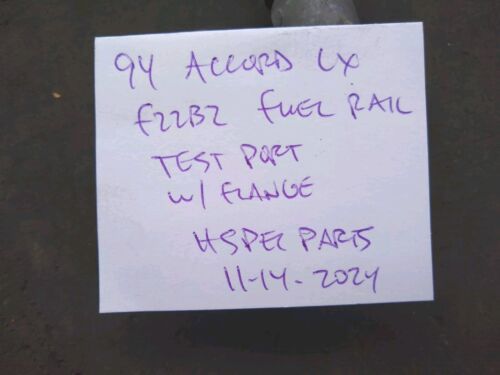 94 ACCORD LX
F22B2 FUEL RAIL
TEST PORT
W/ FLANGE
HSPEC PARTS
11-14-2024